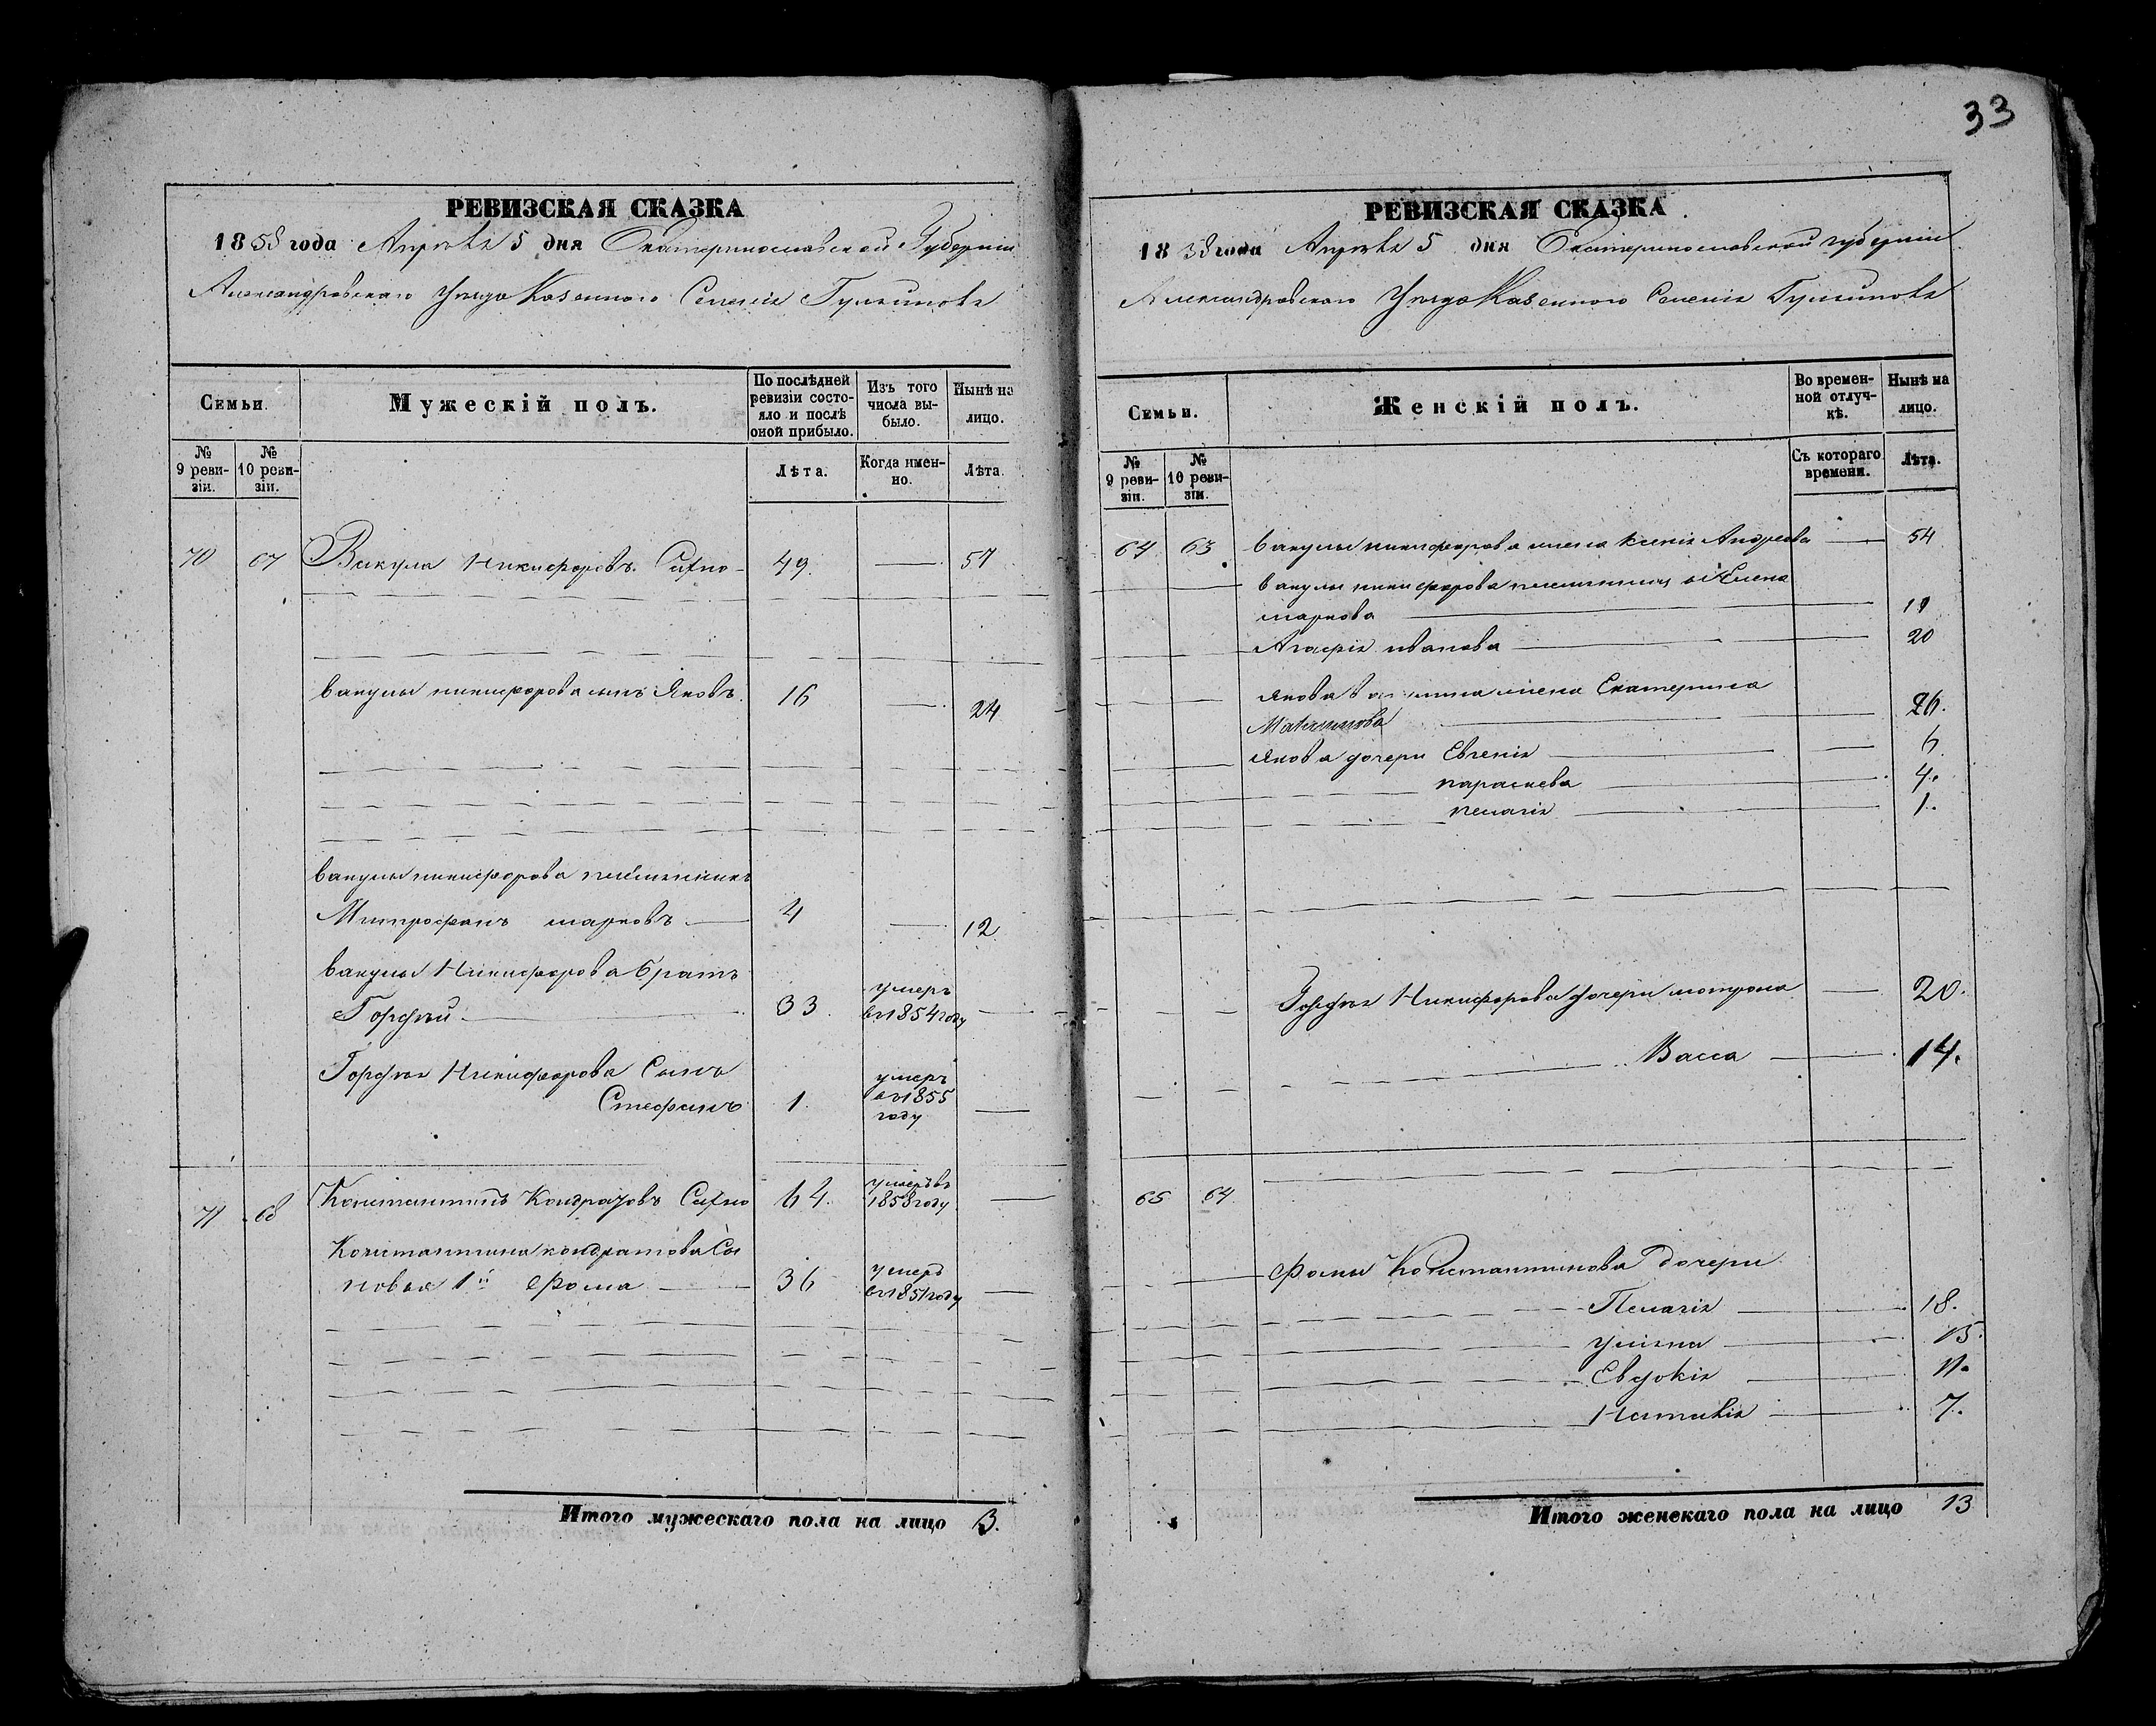 33
РЕВИЗСКАЯ СКАЗКА
1858 года Апрѣля 5 дня Екатеринославской Губерніи
Александровскаго Уѣзда Казеннаго Селенія
Семьи.
Мужескій полъ.
По послѣдней ревизіи состояло и послѣ оной прибыло.
Изъ того числа выбыло.
Нынѣ на лицо.
№ 9 ревизіи.
№ 10 ревизіи.
Лѣта.
Когда именно.
Лѣта.
70 67 Вакула Никифоровъ Сахно 49 57
Вакулы никифорова сынъ Яковъ 16 24
Вакулы никифорова племянникъ
Митрофанъ марковъ 4 12
Вакулы Никифорова братъ
Гордѣй 33 умеръ въ 1854 году
Гордѣя Никифорова Сынъ
Стефанъ 1 умеръ въ 1855 году
71 68 Константинъ Кондратовъ Сахно 64 умеръ въ 1858 году
Константина кондратова Сы
новья 1й Фома 36 умеръ въ 1851 году
Итого мужескаго пола на лицо 3.
РЕВИЗСКАЯ СКАЗКА
1858 года Апрѣля 5 дня Екатеринославской губерніи
Александровскаго Уѣзда Казеннаго Селенія
Семьи.
Женскій полъ.
Во временной отлучкѣ.
Нынѣ на лицо.
№ 9 ревизіи.
№ 10 ревизіи.
Съ котораго времени.
Лѣта.
64 63 Вакулы никифорова жена Ксенія Андреева 54
Вакулы никифорова племянницы Елена
маркова 19
Агафія иванова 20
Якова жена Екатерина
26.
Якова дочери Евгенія 6
параскева 4.
пелагія 1.
Гордѣя Никифорова дочери мотрона 20.
Васса 14.
65 64
Фомы Константинова дочери
Пелагія 18.
уліяна 15.
Евдокія 11.
Наталія 7.
Итого женскаго пола на лицо 13